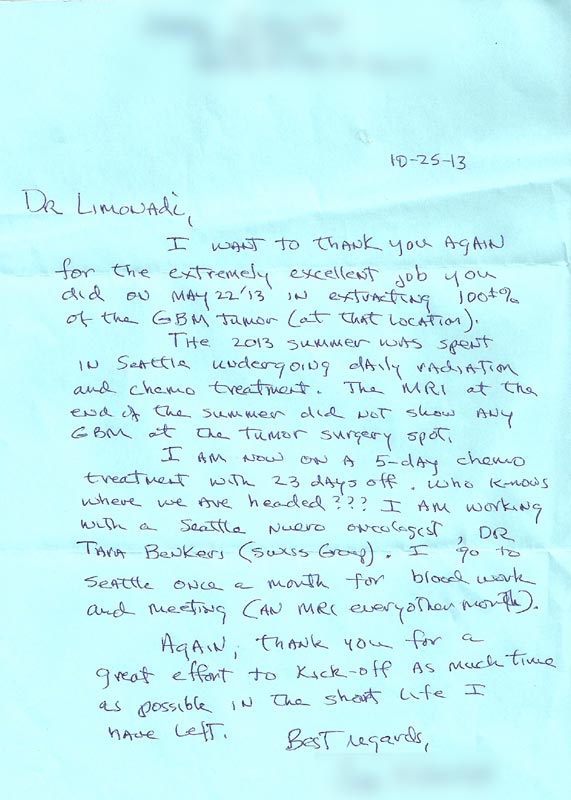 10-25-13
Dr Limonadi,
I want to thank you again
for the extremely excellent job you
did on May 22'13 in extracting 100±%
of the GBM tumor (at that location).
The 2013 summer was spent
in Seattle undergoing daily radiation
and chemo treatment. The MRI at the
end of the summer did not show any
GBM at the tumor surgery spot.
I am now on a 5-day chemo
treatment with 23 days off. Who knows
where we are headed??? I am working
with a Seattle nuero oncologist, Dr
Tara Benkers (Swiss Group). I go to
Seattle once a month for blood work
and meeting (an MRI every other month).
Again, thank you for a
great effort to kick-off as much time
as possible in the short life I
have left.
Best regards,